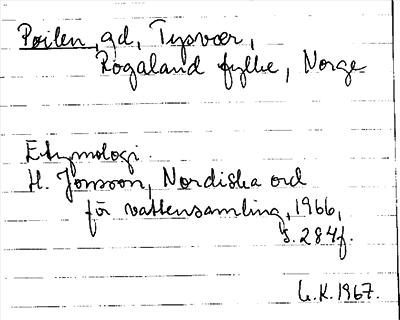 Poilen, gd, Tysvær,
Rogaland fylke, Norge
Etymologi.
H. Jonsson, Nordiska ord
för vattensamling, 1966,
s. 284f.
L.K. 1967.